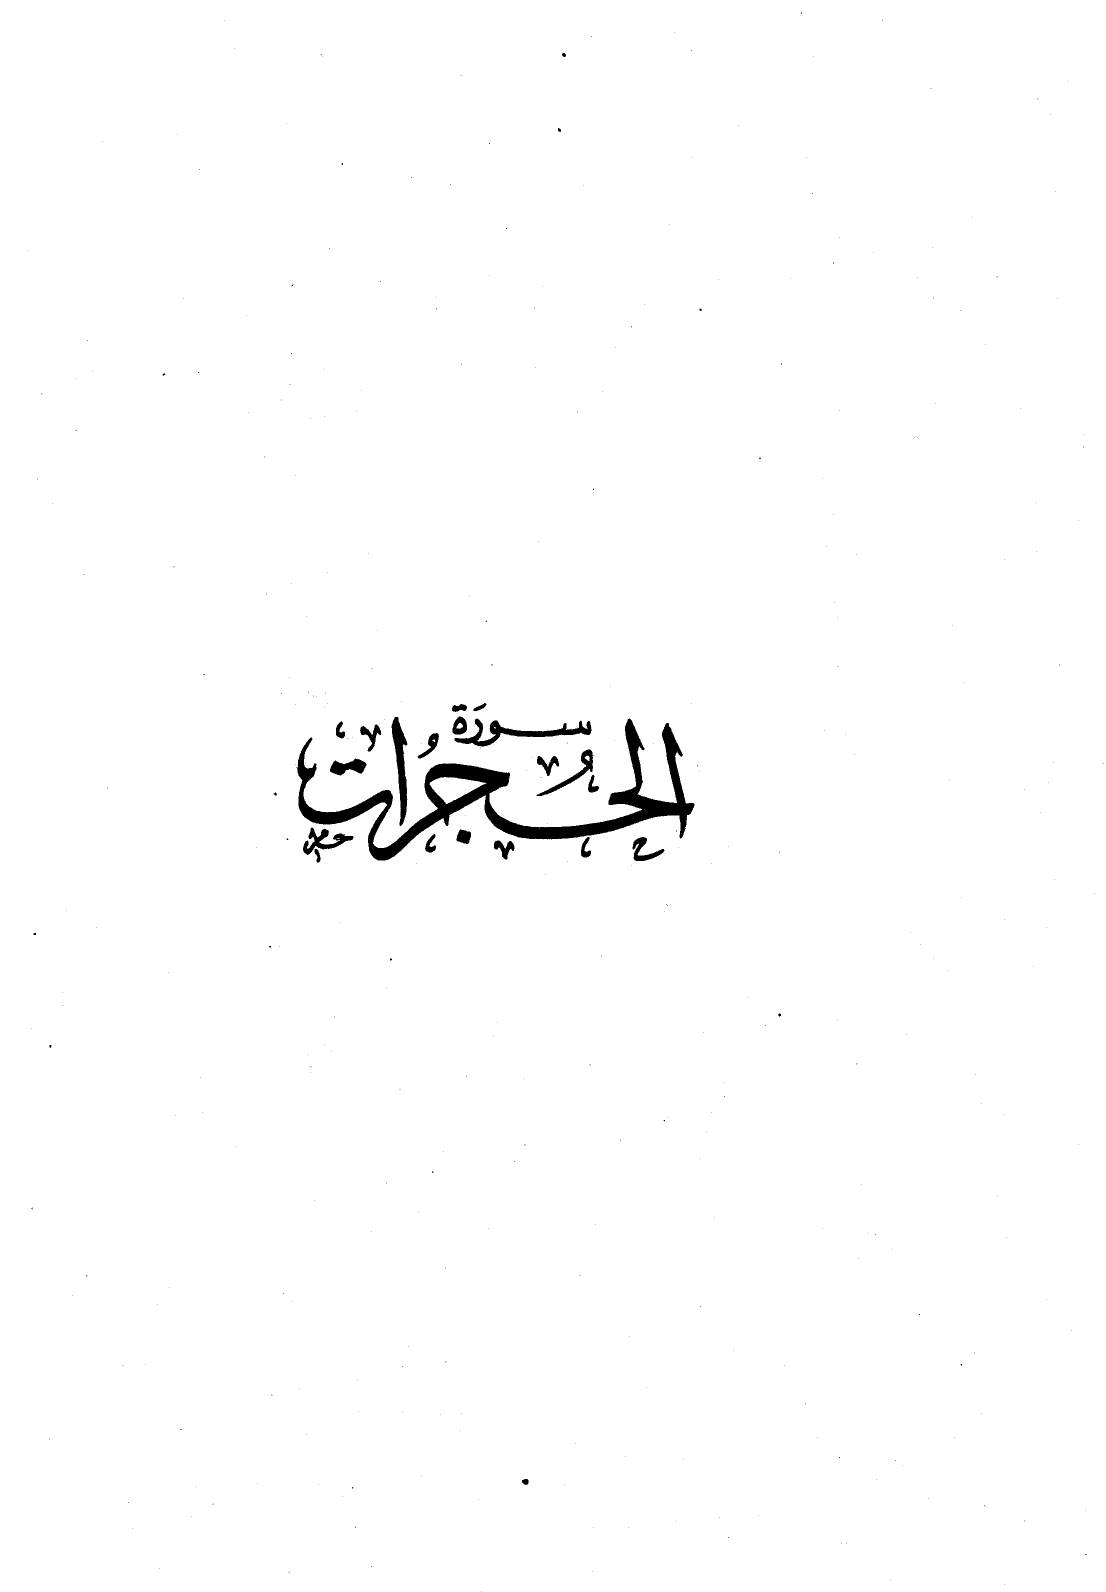 سورة
الحُجُرات